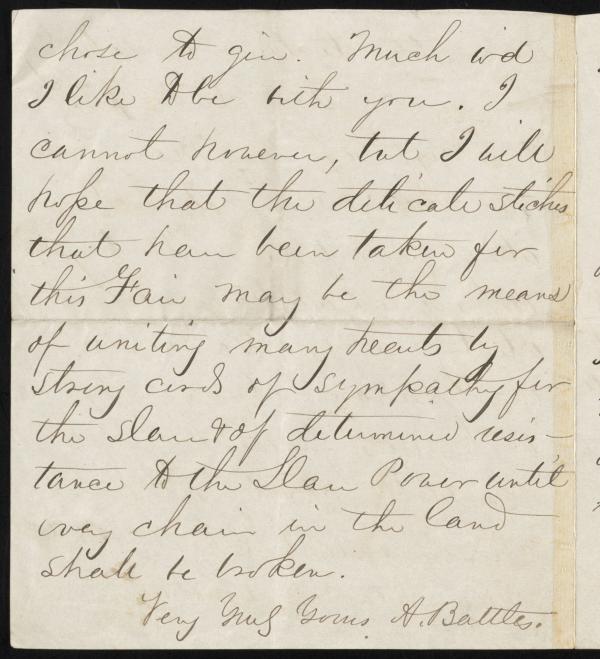 chose to give. Much wd
I like to be with you. I
cannot however, but I will
hope that the delicate stiches
that have been taken for
this Fair may be the means
of uniting many hearts by
strong cords of sympathy for
the slave & of determined resis-
tance to the Slave Power until
every chain in the land
shall be broken.
Very truly Yours, A. Battles.